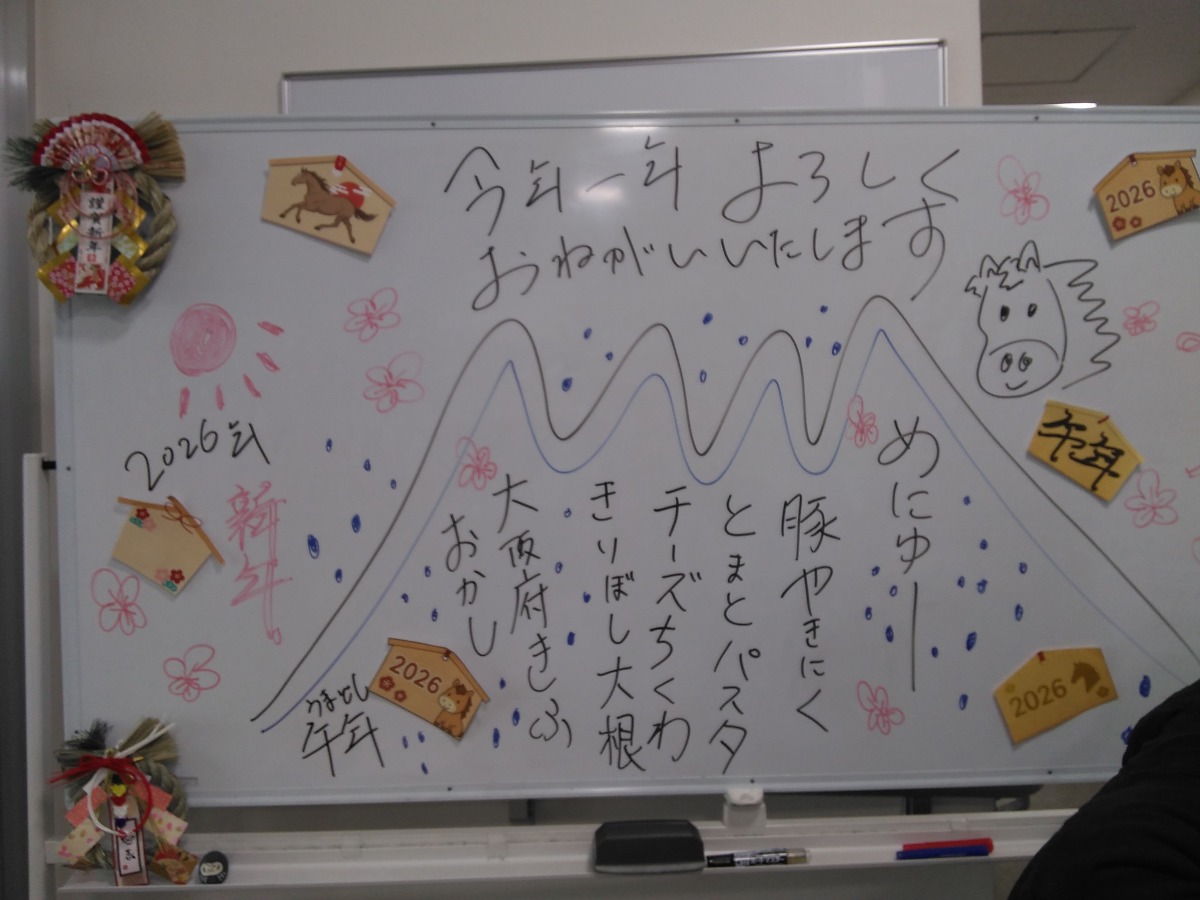 今年一年 よろしく
おねがいいたします
謹賀新年
2026
2026年
新年
午年
めにゅー
豚やきにく
とまとパスタ
チーズちくわ
きりぼし大根
大阪府きしふ
おかし
うまとし
午年
2026
2026